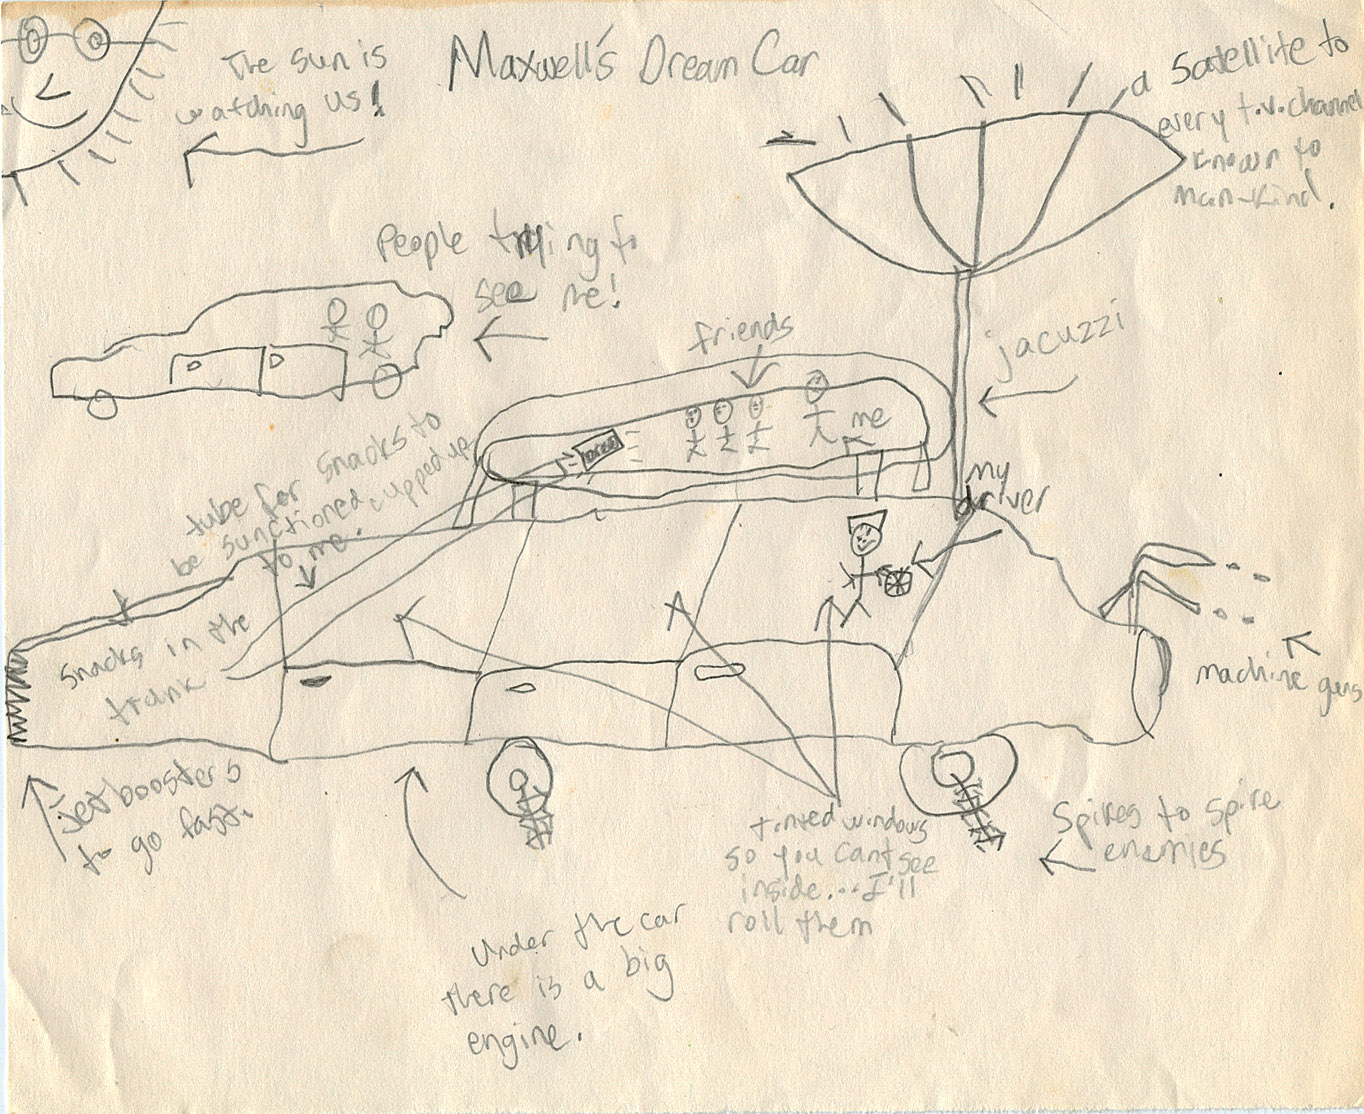 Maxwell's Dream Car
The sun is
watching us!
a satellite to
every t.v. channel
known to
man-kind.
People trying to
see me!
friends
jacuzzi
me
my
driver
tube for snacks to
be sunctioned cupped up
to me.
snacks in the
trunk
machine guns
Jet boosters
to go fast.
Under the car
there is a big
engine.
tinted windows
so you cant see
inside... I'll
roll them
Spikes to spike
enemies